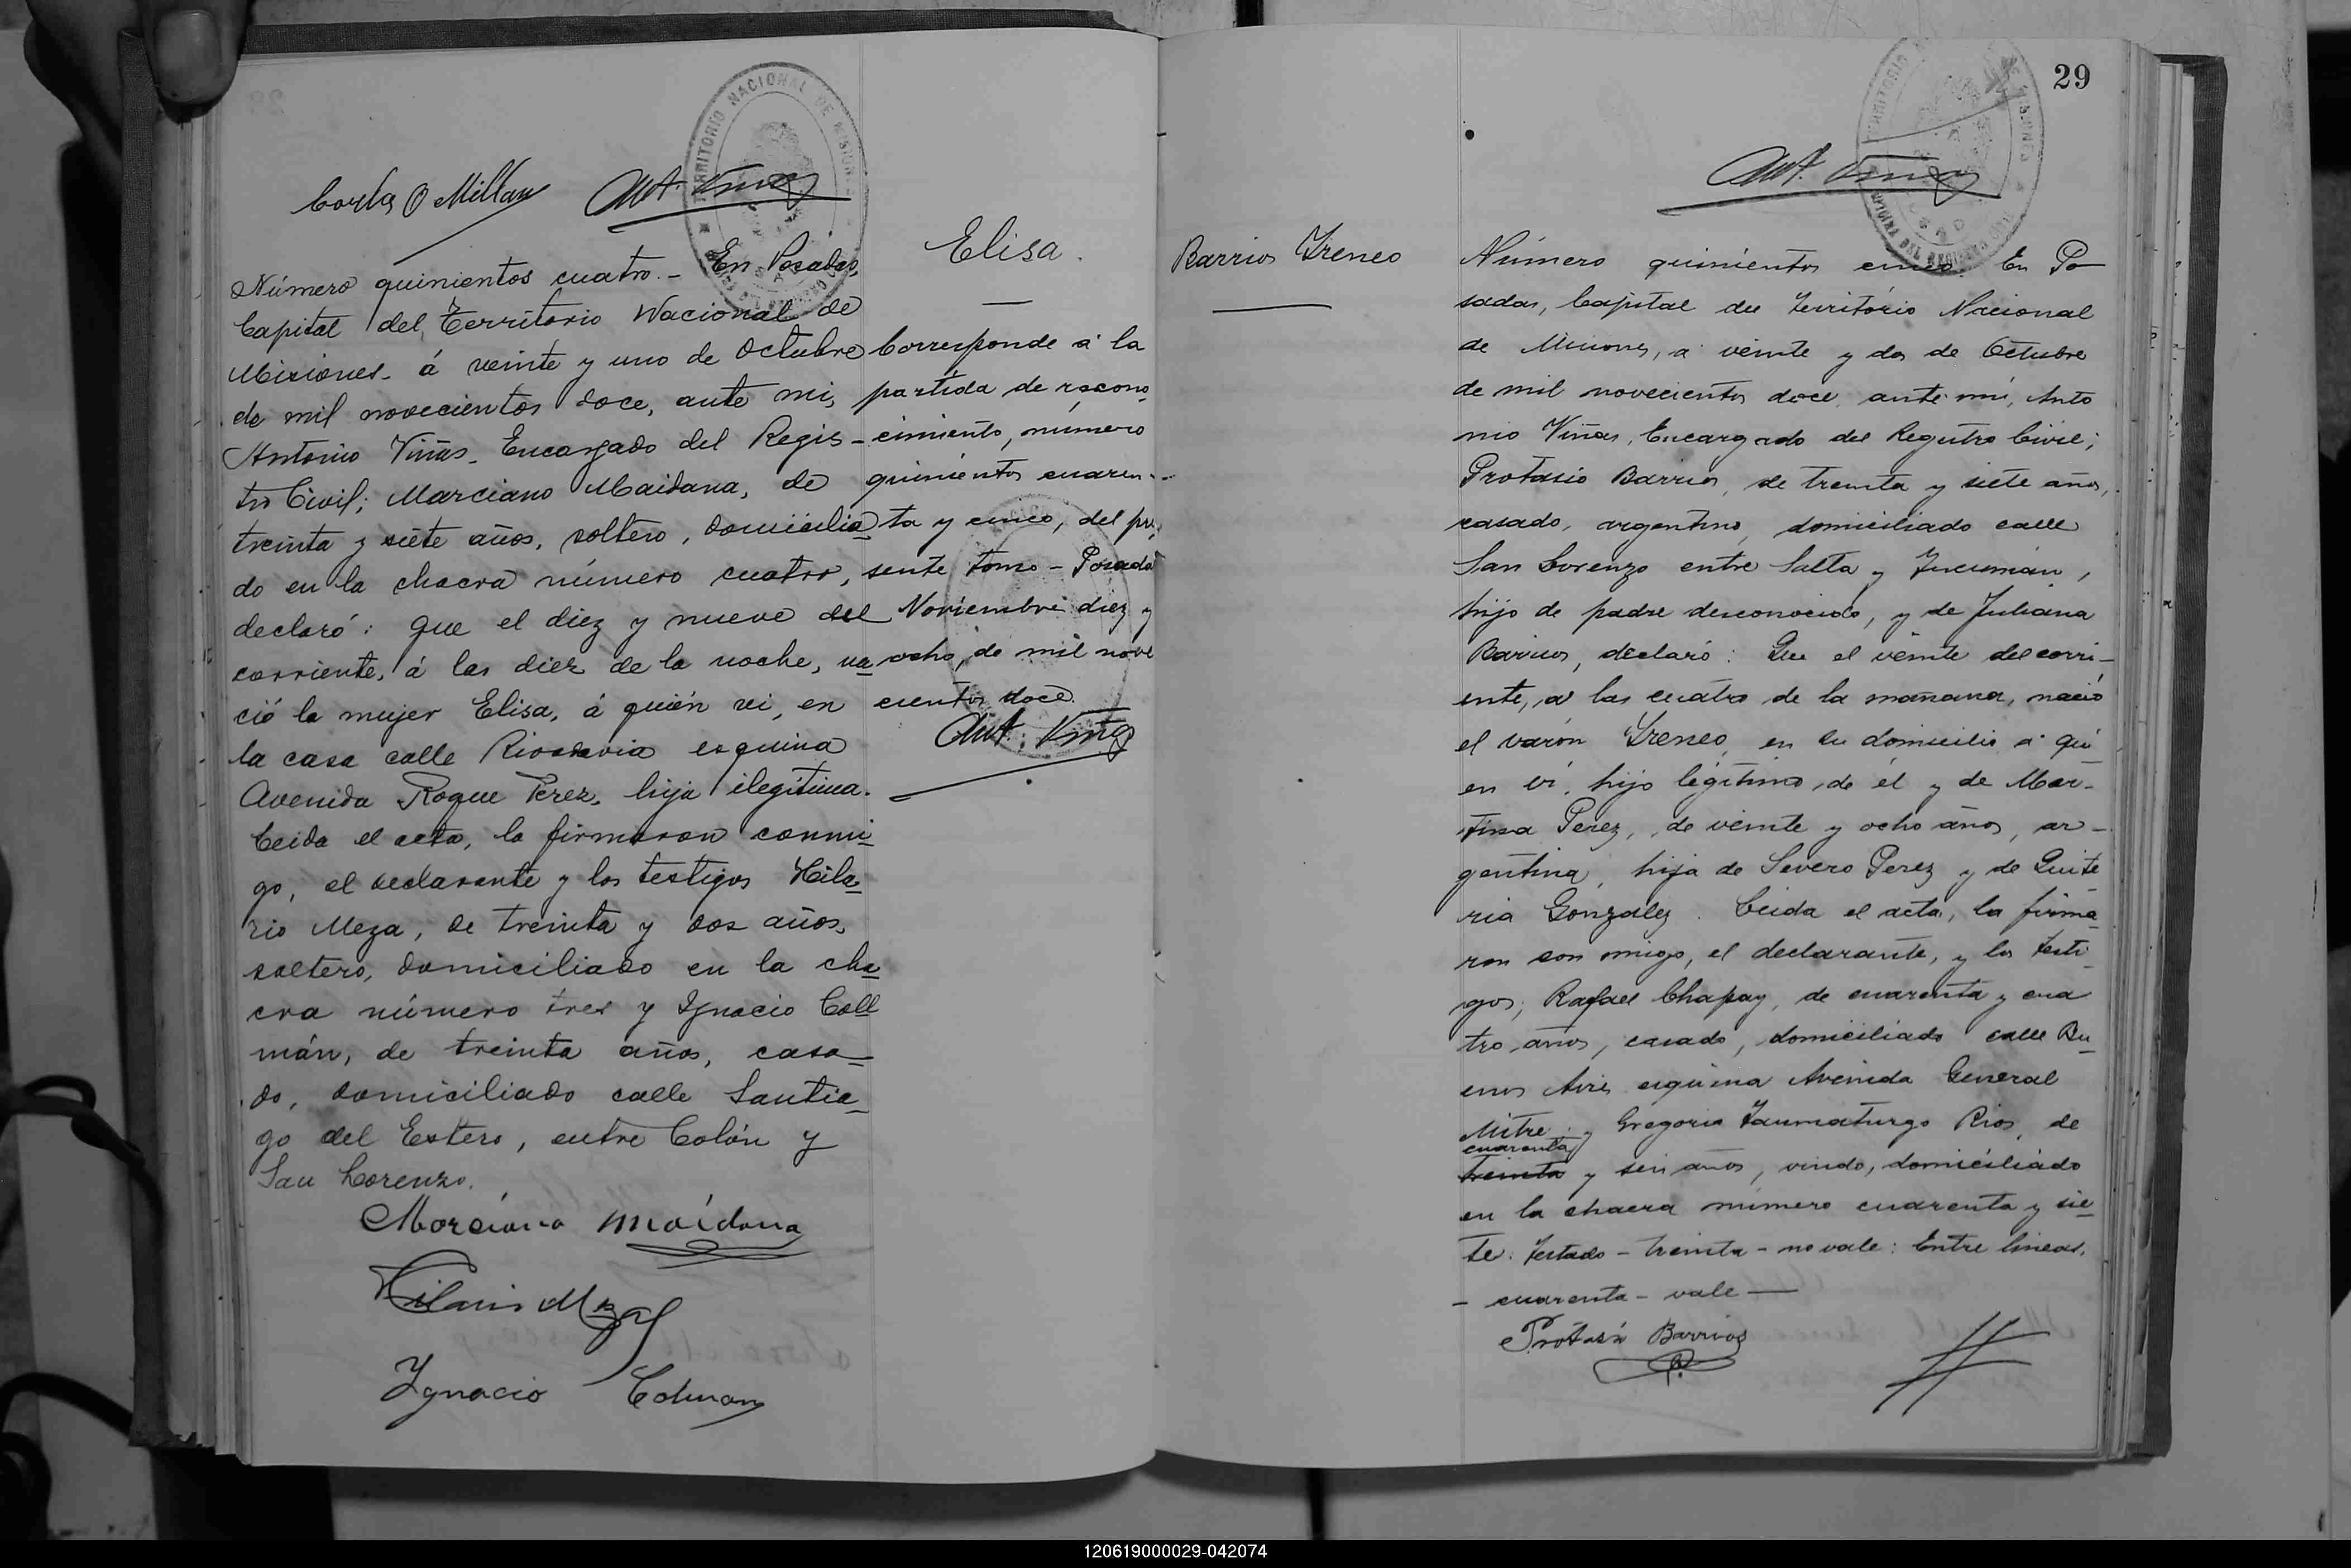 Carlos O Millan Ant. Viñas
Número quinientos cuatro.- En Posadas,
Capital del Territorio Nacional de
Misiones- á veinte y uno de Octubre
de mil novecientos doce, ante mi,
Antonio Viñas- Encargado del Regis-
tro Civil; Marciano Maidana, de
treinta y siete años, soltero, domicilia
do en la chacra número cuatro,
declaró: que el diez y nueve del
corriente, á las diez de la noche, na
ció la mujer Elisa, á quién vi, en
la casa calle Rivadavia esquina
Avenida Roque Perez, hija ilegítima.
Leida el acta, la firmaron conmi
go, el declarante y los testigos Hila
rio Meza, de treinta y dos años,
soltero, domiciliado en la cha
cra número tres y Ignacio Coll
mán, de treinta años, casa
do, domiciliado calle Santia
go del Estero, entre Colón y
San Lorenzo.
Marciano Maidana
Hilario Meza
Ignacio Colman
Elisa.
Corresponde á la
partida de recono
cimiento, número
quinientos cuaren-
ta y cinco, del pre
sente tomo - Posadas
Noviembre diez y
ocho, de mil nove
cientos doce.
Ant. Viñas
29
Ant. Viñas
Barrios Ireneo
Número quinientos cinco. En Po
sadas, Capital del Territorio Nacional
de Misiones, á veinte y dos de Octubre
de mil novecientos doce, ante mí, Anto
nio Viñas, Encargado del Registro Civil;
Protasio Barrios, de treinta y siete años,
casado, argentino, domiciliado calle
San Lorenzo entre Salta y Tucumán,
hijo de padre desconocido, y de Juliana
Barrios, declaró: Que el veinte del corri-
ente, á las cuatro de la mañana, nació
el varón Ireneo, en su domicilio á qui
en ví, hijo legítimo, de él y de Mar-
tina Perez, de veinte y ocho años, ar-
gentina, hija de Severo Perez y de Quite
ria Gonzalez. Leida el acta, la firma
ron con migo, el declarante, y los testi
gos, Rafael Chapay, de cuarenta y cua
tro años, casado, domiciliado calle Bu
enos Aires esquina Avenida General
Mitre y Gregorio Taumaturgo Rios, de
cuarenta
treinta y seis años, viudo, domiciliado
en la chacra número cuarenta y sie
te. Testado - treinta - no vale: Entre lineas,
- cuarenta - vale —
Protasio Barrios
120619000029-042074